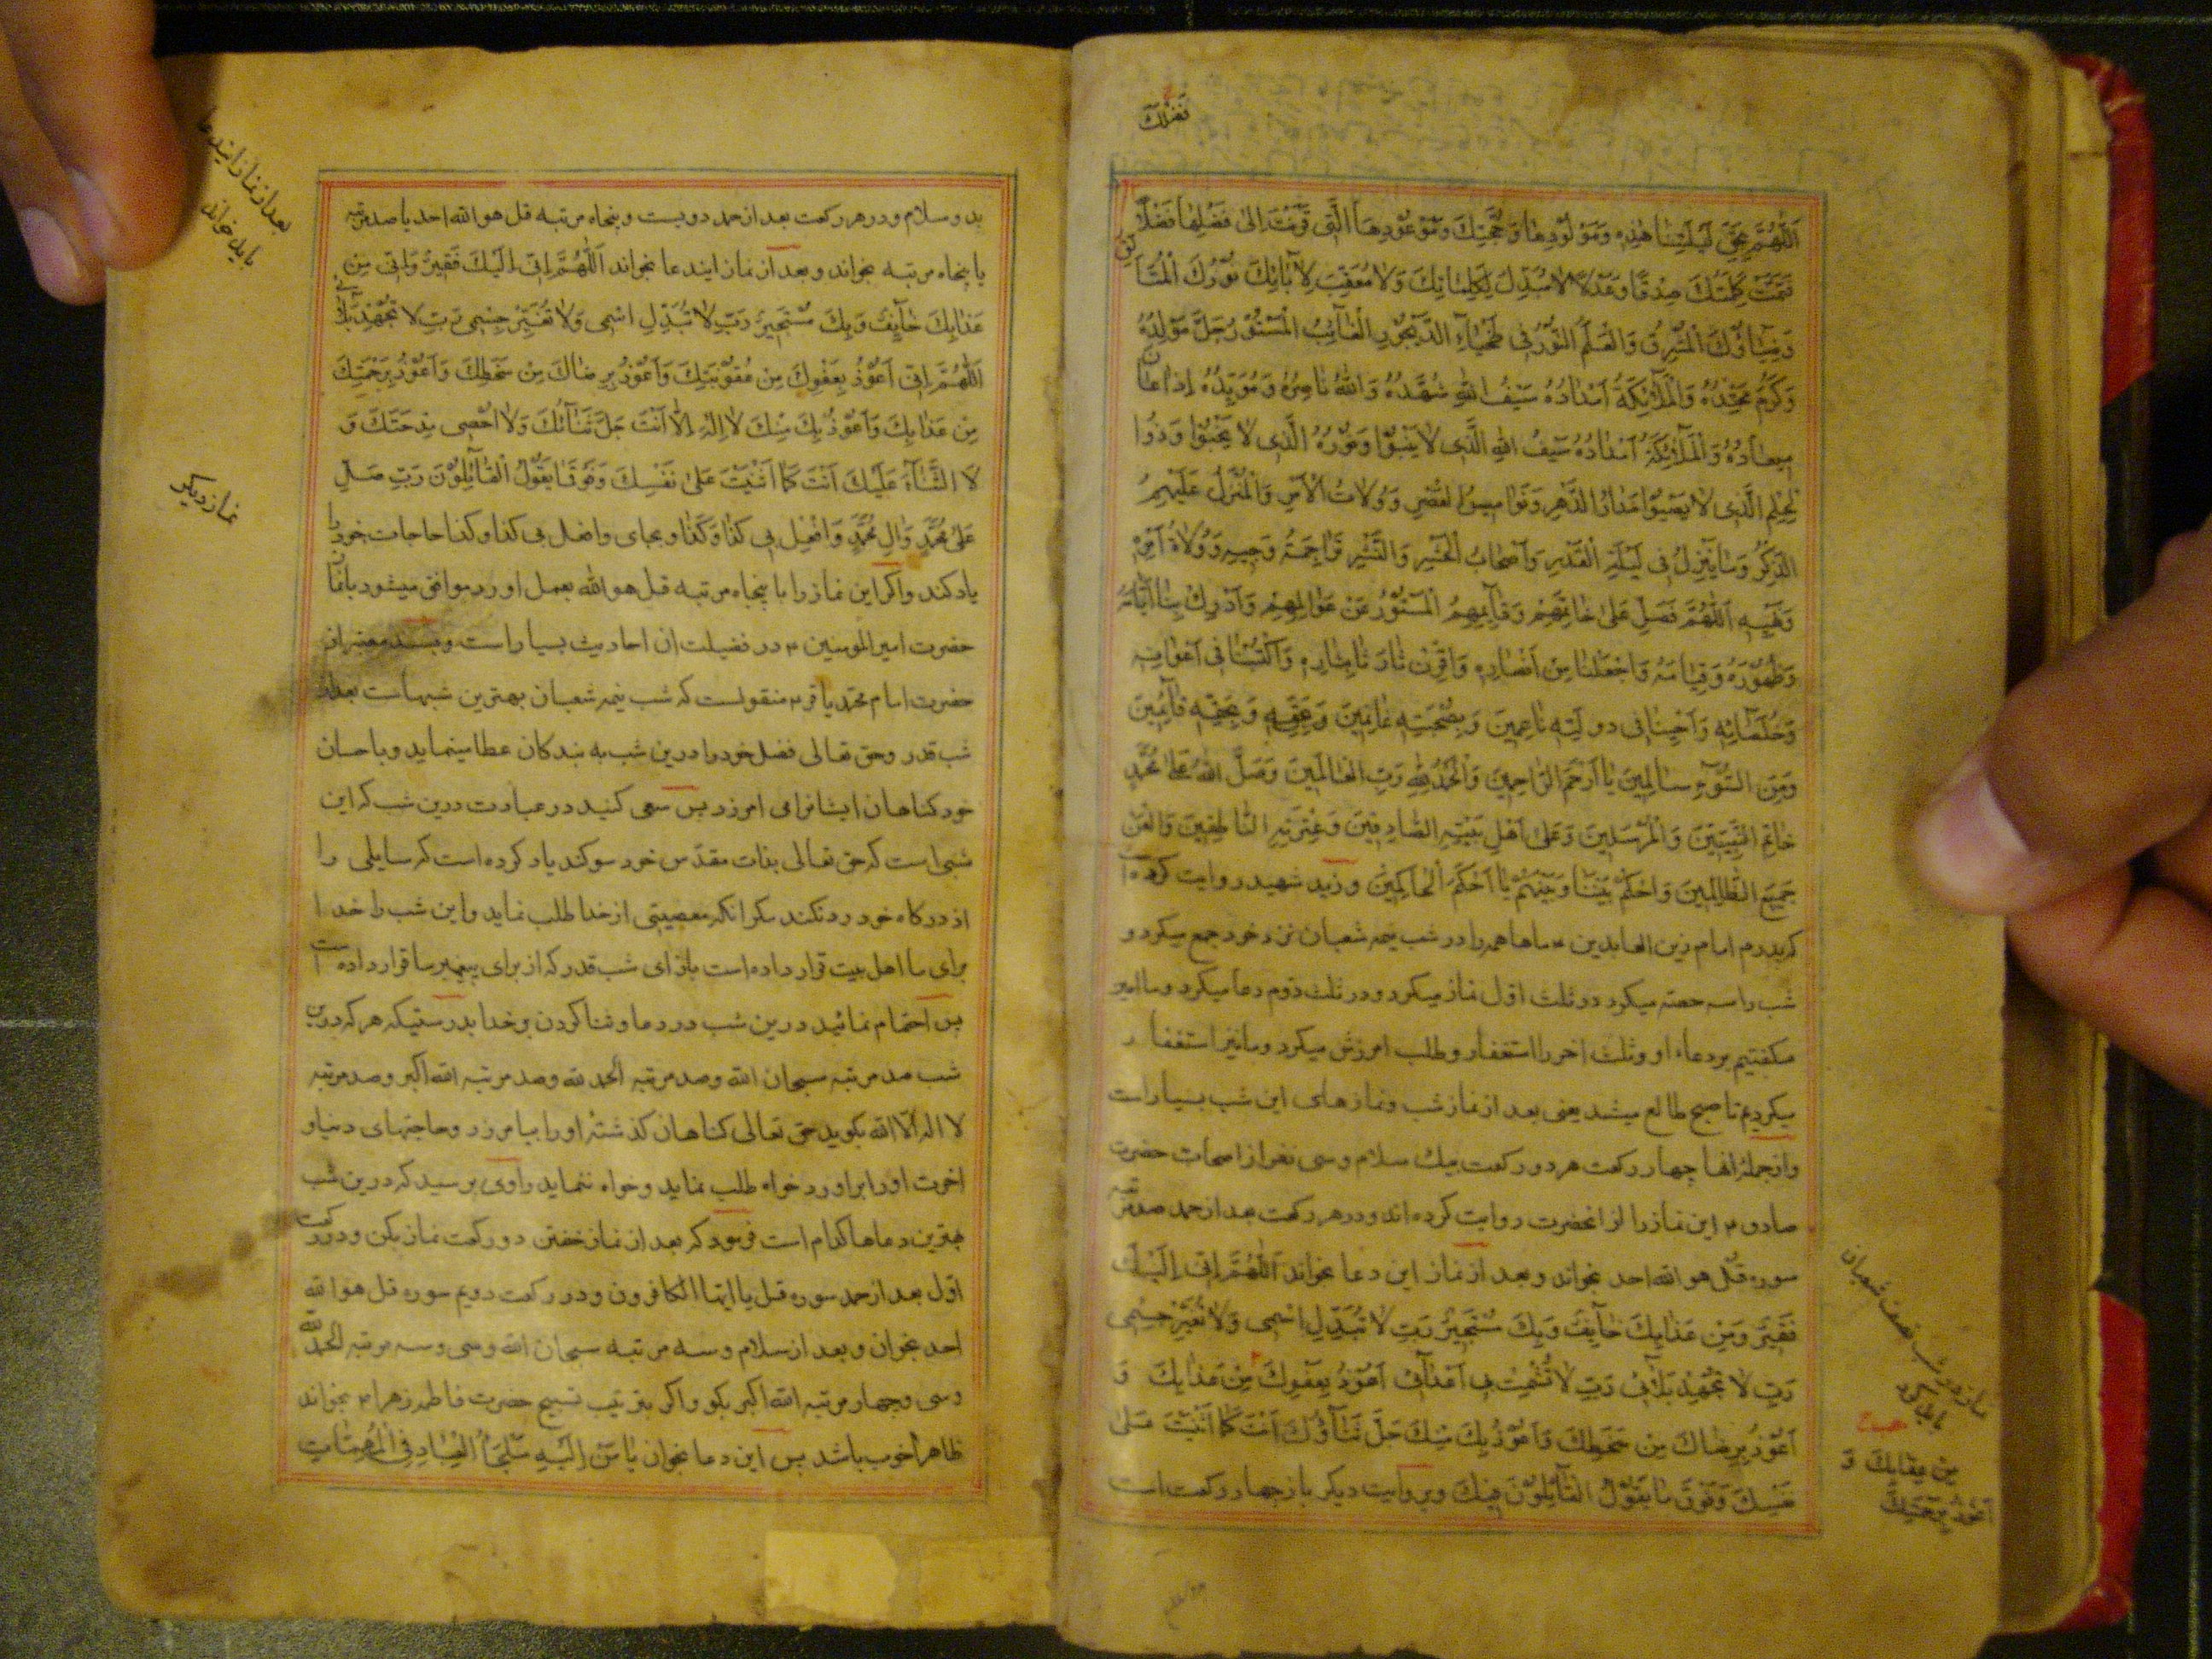 فَضْلَكَ
اَللّٰهُمَّ بِحَقِّ لَيْلَتِنَا هٰذِهِ وَمَوْلُوْدِهَا وَحُجَّتِكَ وَمَوْعُوْدِهَا الَّتِى قَرَنْتَ اِلٰى فَضْلِهَا فَضْلًا
فَتَمَّتْ كَلِمَتُكَ صِدْقًا وَعَدْلًا لَا مُبَدِّلَ لِكَلِمَاتِكَ وَلَا مُعَقِّبَ لِاٰيَاتِكَ نُوْرُكَ الْمُتَاَلِّقُ
وَضِيَاؤُكَ الْمُشْرِقُ وَالْعَلَمُ النُّوْرُ فِى طَخْيَاءِ الدَّيْجُوْرِ الْغَآئِبُ الْمَسْتُوْرُ جَلَّ مَوْلِدُهُ
وَكَرُمَ مَحْتِدُهُ وَالْمَلٰٓئِكَةُ اَمْدَادُهُ سَيْفُ اللّٰهِ شُهَّدُهُ وَاللّٰهُ نَاصِرُهُ وَمُؤَيِّدُهُ اِذَا اٰنَ
مِيعَادُهُ وَالْمَلٰٓئِكَةُ اَمْدَادُهُ سَيْفُ اللّٰهِ الَّذِى لَا يَنْبُوْا وَنُوْرُهُ الَّذِى لَا يَخْبُوْا وَذُوا
لْحِلْمِ الَّذِى لَا يَصْبُوْا مَدَارُ الدَّهْرِ وَنَوَامِيسُ الْعَصْرِ وَوُلَاتُ الْاَمْرِ وَالْمُنَزَّلُ عَلَيْهِمُ
الذِّكْرُ وَمَا يَنْزِلُ فِى لَيْلَةِ الْقَدْرِ وَاَصْحَابُ الْحَشْرِ وَالنَّشْرِ تَرَاجِمَةُ وَحْيِهِ وَوُلَاةُ اَمْرِهِ
وَنَهْيِهِ اَللّٰهُمَّ فَصَلِّ عَلٰى خَاتِمِهِمْ وَقَآئِمِهِمُ الْمَسْتُوْرُ عَنْ عَوَالِمِهِمْ وَاَدْرِكْ بِنَا اَيَّامَهُ
وَظُهُوْرَهُ وَقِيَامَهُ وَاجْعَلْنَا مِنْ اَنْصَارِهِ وَاقْرِنْ ثَارَنَا بِثَارِهِ وَاكْتُبْنَا فِى اَعْوَانِهِ
وَخُلَصَائِهِ وَاَحْيِنَا فِى دولَتِهِ نَاعِمِينَ وَبِصُحْبَتِهِ غَانِمِينَ وَبِحَقِّهِ قَآئِمِينَ
وَمِنَ السُّوْءِ سَالِمِينَ يَا اَرْحَمَ الرَّاحِمِينَ وَالْحَمْدُ لِلّٰهِ رَبِّ الْعَالَمِينَ وَصَلَّ اللّٰهُ عَلٰى مُحَمَّدٍ
خَاتَمِ النَّبِيِّينَ وَالْمُرْسَلِينَ وَعَلٰى اَهْلِ بَيْتِهِ الصَّادِقِينَ وَعِتْرَتِهِ النَّاطِقِينَ وَالْعَنْ
جَمِيعَ الظَّالِمِينَ وَاحْكُمْ بَيْنَنَا وَبَيْنَهُمْ يَا اَحْكَمَ الْحَاكِمِينَ وزید شهید روایت کرده ا
که پدرم امام زین العابدین ع ماها همه را در شب نیمه شعبان نزد خود جمع میکرد و
شب را سه حصته میکرد در ثلث اول نماز میکرد و در ثلث دوم دعا میکرد و ما امین
میکفتیم بر دعاء او و ثلث اخر را استغفار و طلب امرزش میکرد و ما نیز استغفار
میکردیم تا صبح طالع میشد یعنی بعد از نماز شب و نمازهای این شب بسیار است
و از جملهٔ انها چهار رکعت هر دو رکعت بیک سلام و سی نفر از اصحاب حضرت
صادق ع این نماز را از انحضرت روایت کرده اند و در هر رکعت بعد از حمد صد مرتبه
سوره قل هو الله احد بخواند و بعد از نماز این دعا بخواند اَللّٰهُمَّ اِنّى اِلَيْكَ
فَقِيرٌ وَمِنْ عَذَابِكَ خَآئِفٌ وَبِكَ مُسْتَجِيرٌ رَبِّ لَا تُبَدِّلِ اسْمِى وَلَا تُغَيِّرْ جِسْمِى
رَبِّ لَا تُجْهِدْ بَلَآئِى رَبِّ لَا تُشْمِتْ بِى اَعْدَآئِى اَعُوْذُ بِعَفْوِكَ مِنْ عَذَابِكَ وَ
اَعُوْذُ بِرِضَاكَ مِنْ سَخَطِكَ وَاَعُوْذُ بِكَ مِنْكَ جَلَّ ثَنَآؤُكَ اَنْتَ كَمَا اَثْنَيْتَ عَلٰى
نَفْسِكَ وَفَوْقَ مَا يَقُوْلُ الْقَآئِلُوْنَ فِيكَ وبروایت دیکر باز چهار رکعت است
نماز در شب نصف شعبان
باید کرد
صح
مِنْ عِقَابِكَ وَ
اَعُوْذُ بِرَحْمَتِكَ
بدو سلام و در هر رکعت بعد از حمد دویست و پنجاه مرتبه قل هو الله احد یا صد مرتبه
یا پنجاه مرتبه بخواند و بعد از نماز ایندعا بخواند اَللّٰهُمَّ اِنّى اِلَيْكَ فَقِيرٌ وَاِنّى مِنْ
عَذَابِكَ خَآئِفٌ وَبِكَ مُسْتَجِيرٌ رَبِّ لَا تُبَدِّلِ اسْمِى وَلَا تُغَيِّرْ جِسْمِى رَبِّ لَا تُجْهِدْ بَلَآئِى
اَللّٰهُمَّ اِنّى اَعُوْذُ بِعَفْوِكَ مِنْ عُقُوْبَتِكَ وَاَعُوْذُ بِرِضَاكَ مِنْ سَخَطِكَ وَاَعُوْذُ بِرَحْمَتِكَ
مِنْ عَذَابِكَ وَاَعُوْذُ بِكَ مِنْكَ لَا اِلٰهَ اِلَّا اَنْتَ جَلَّ ثَنَآئُكَ وَلَا اُحْصِى مِدْحَتَكَ وَ
لَا الثَّنَاءَ عَلَيْكَ اَنْتَ كَمَا اَثْنَيْتَ عَلٰى نَفْسِكَ وَفَوْقَ مَا يَقُوْلُ الْقَآئِلُوْنَ رَبِّ صَلِّ
عَلٰى مُحَمَّدٍ وَاٰلِ مُحَمَّدٍ وَافْعَلْ بِى كَذَا وَكَذَا و بجای وافعل بی کذا و کذا حاجات خود را
یاد کند و اکر این نماز را با پنجاه مرتبه قل هو الله بعمل اورد موافق میشود با نماز
حضرت امیر المومنین ع در فضیلت ان احادیث بسیار است و بسند معتبر از
حضرت امام محمد باقر ع منقولست که شب نیمه شعبان بهترین شبهاست بعد از
شب قدر و حق تعالی فضل خود را درین شب به بندکان عطا مینماید و باحسان
خود کناهان ایشانرا می امرزد پس سعی کنید در عبادت درین شب که این
شبی است که حق تعالی بذات مقدس خود سوکند یاد کرده است که سایلی را
از درکاه خود رد نکند مکر انکه معصیتی از خدا طلب نماید و این شب را خدا
برای ما اهل بیت قرار داده است بازای شب قدر که از برای پیغمبر ما قرار داده است
پس اهتمام نمائید درین شب در دعا و ثنا کردن بر خدا بدرستیکه هر که درین
شب صد مرتبه سبحان الله و صد مرتبه الحمد لله و صد مرتبه الله اکبر و صد مرتبه
لا اله الا الله بکوید حق تعالی کناهان کذشته او را بیامرزد و حاجتهای دنیا و
اخرت او را براورد خواه طلب نماید و خواه ننماید راوی پرسید که درین شب
بهترین دعاها کدام است فرمود که بعد از نماز خفتن دو رکعت نماز بکن و در رکعت
اول بعد از حمد سوره قل یا ایها الکافرون و در رکعت دویم سوره قل هو الله
احد بخوان و بعد از سلام و سه مرتبه سبحان الله و سی و سه مرتبه الحمد لله
و سی و چهار مرتبه الله اکبر بکو و اکر بترتیب تسبیح حضرت فاطمه زهرا ع بخواند
ظاهرا خوب باشد پس این دعا بخوان يَا مَنْ اِلَيْهِ مَلْجَاُ الْعِبَادِ فِى الْمُهِمَّاتِ
بعد از نماز ایندعا
باید خواند
نماز دیکر